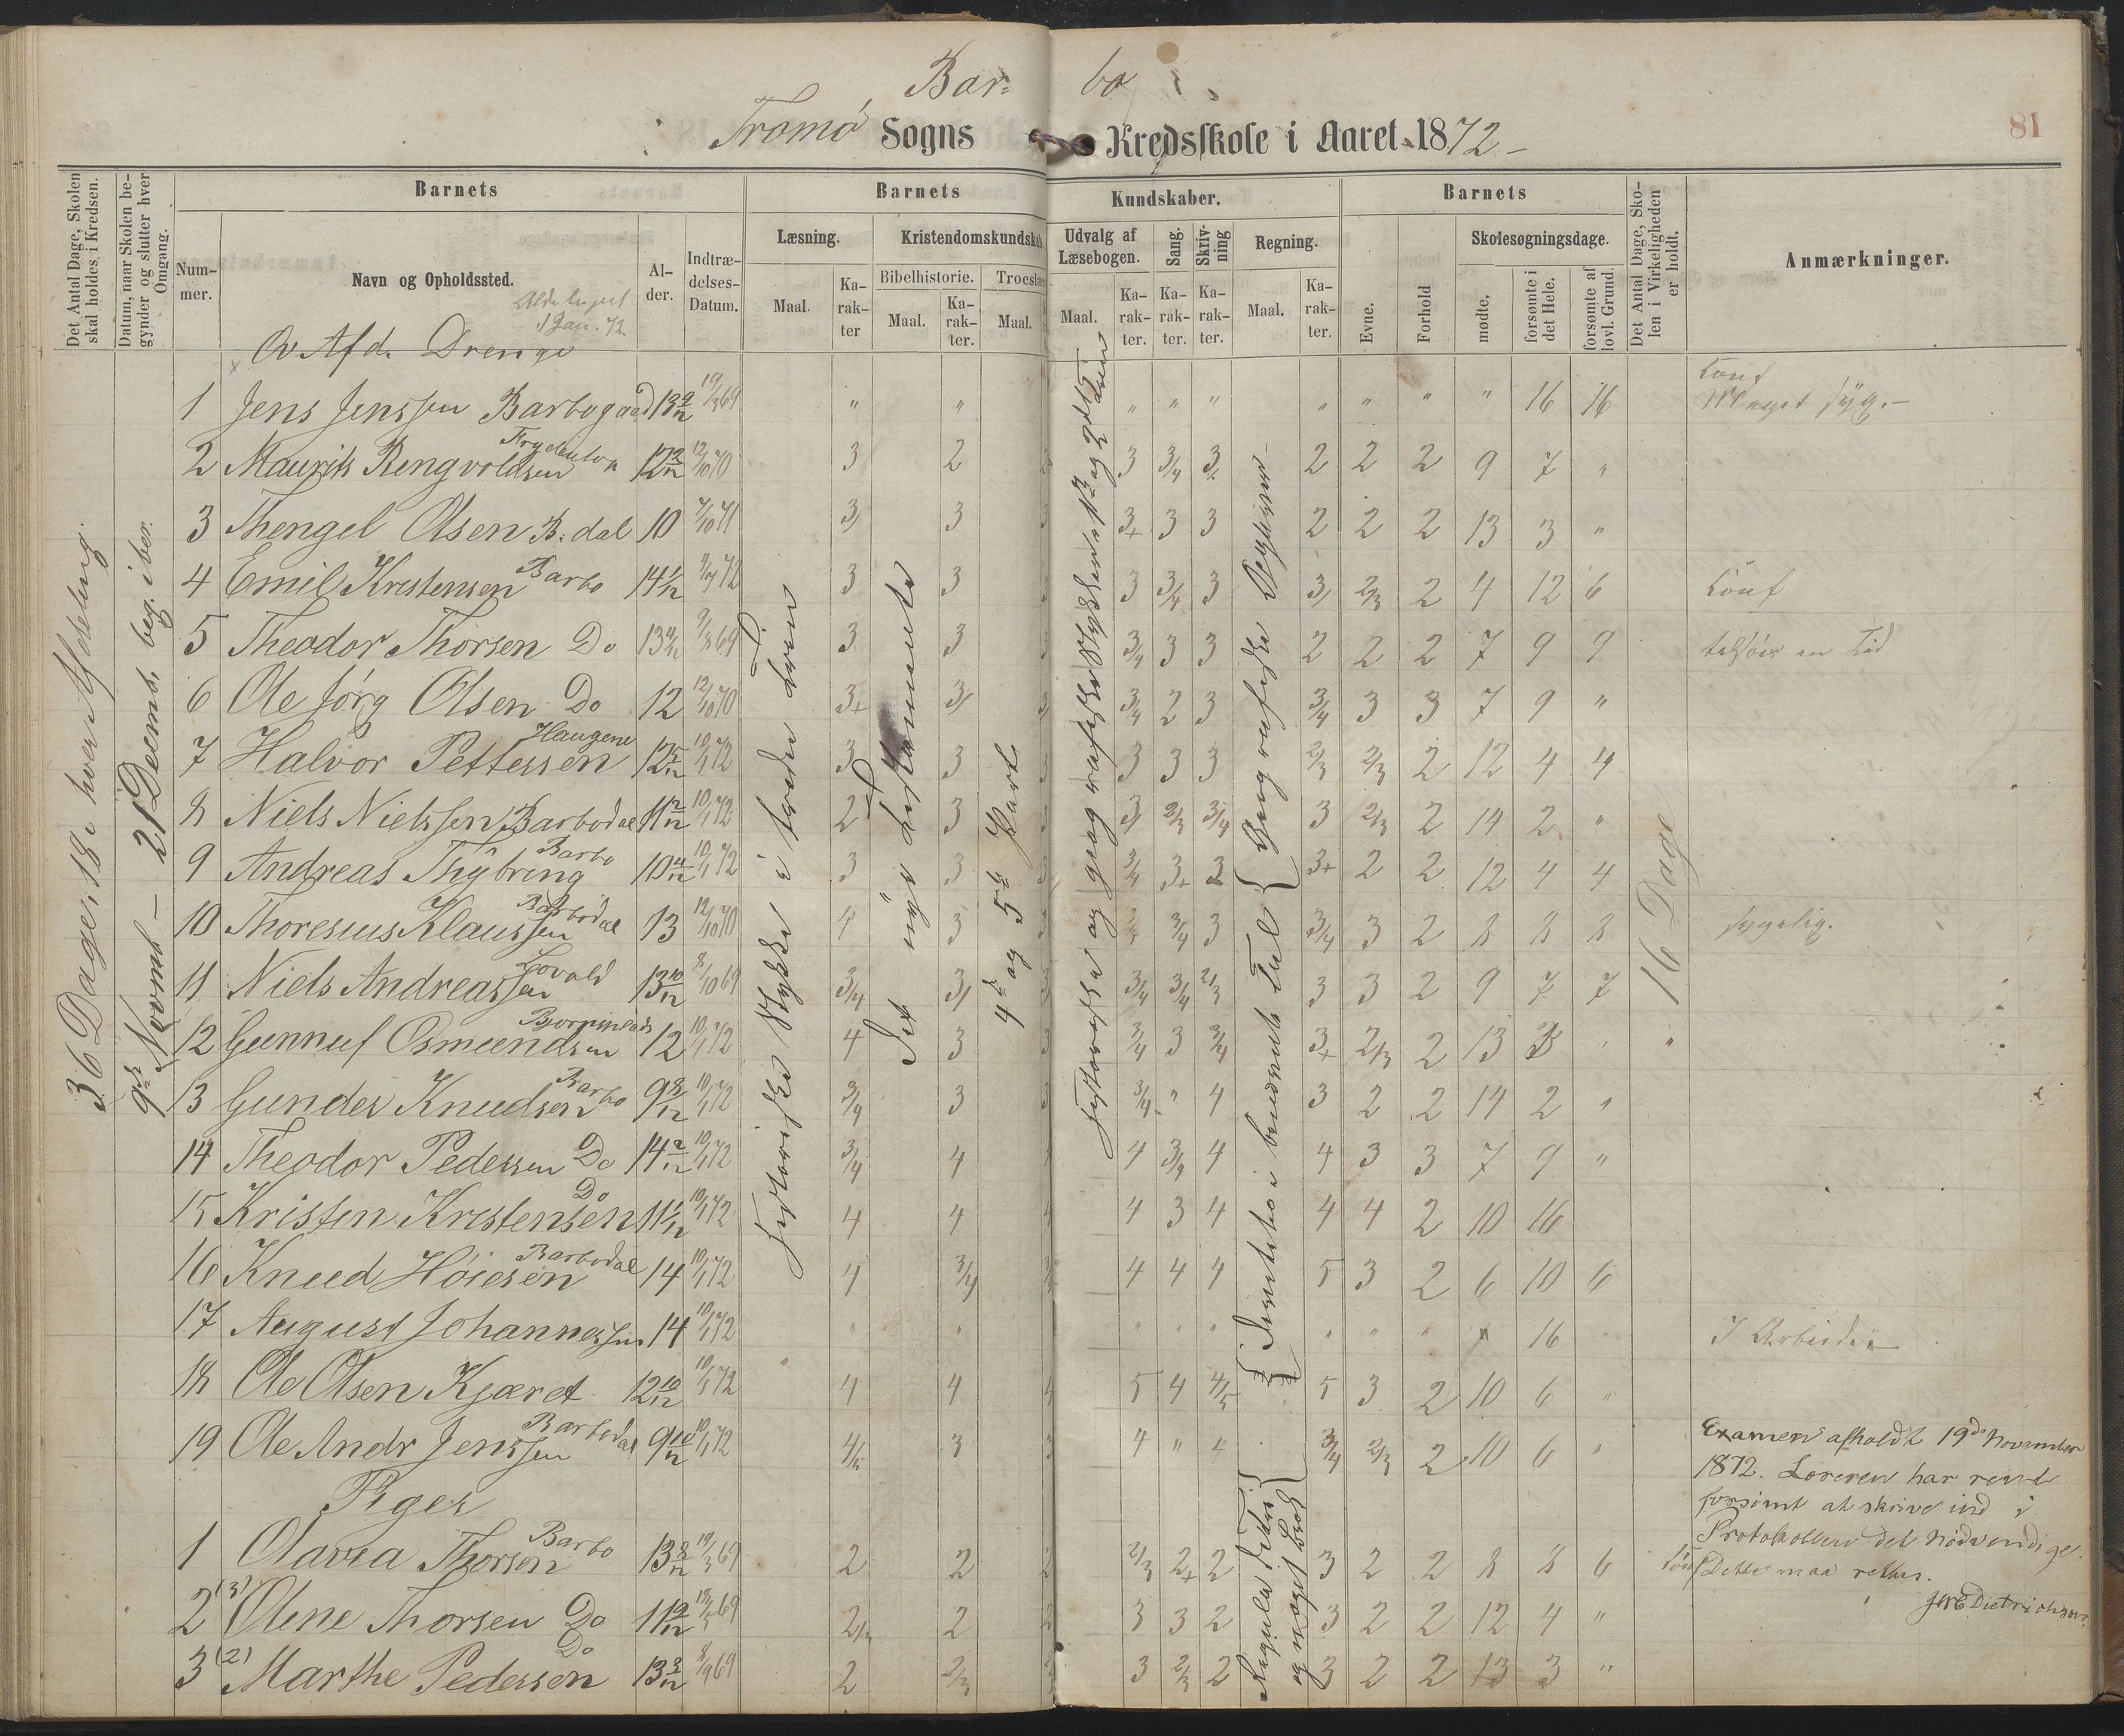 Bar= bo
81
Tromø Sogns Kredsskole i Aaret 1872
Det Antal Dage, Skolen skal holdes i Kredsen.
Datum, naar Skolen begynder og slutter hver Omgang.
Barnets
Num-mer.
Navn og Opholdssted.
1 Jan. 72
Al-der.
Indtræ-delses-Datum.
Barnets Kundskaber.
Læsning.
Maal.
Ka-rak-ter
Kristendomskundskab
Bibelhistorie.
Maal.
Ka-rak-ter.
Troeslær
Maal.
Udvalg af Læsebogen.
Maal.
Ka-rak-ter.
Sang.
Ka-rak-ter.
Skriv-ning
Ka-rak-ter.
Regning.
Maal.
Ka-rak-ter.
Barnets
Evne.
Forhold
Skolesøgningsdage.
mødte.
forsømte i det Hele.
forsømte af lovl. Grund.
Det Antal Dage, Sko-len i Virkeligheden er holdt.
Anmærkninger.
36 Dage, 18 i hver Afdeling.
9de Novemb – 21 Decemb. beg. iber.
Historiske Stykker i tredie Trin
Det nye Testamente
4de og 5te Part
16 Dage
Øv Afd. Drenge
1 Jens Jenssen Barbogaard 13 9/12 19/3 69 " " " " " " " " " 16 16 Konf Meget syg.
2 Maurits Rengvoldsen 12 12/10 70 3 2 3 3/4 3 2 2 2 9 7 "
3 Thengel Olsen B.dal 10 7/10 71 3 3 3+ 3 3 2 2 2 13 3 "
4 Emil Kristensen Barbo 14 1/12 72 3 3 3 3/4 3 3 2/3 2 4 12 6 Konf
5 Theodor Thorsen Do 13 69 3 3 3/4 3 3 2 2 2 7 9 9 en Tid
6 Ole Jörg Olsen Do 12 12/10 70 3+ 3 3/4 2 3 3/4 3 3 7 9 "
7 Halvor Pettersen Haugene 12 5/12 10/1 72 3 3 3 3 3 2/3 2/3 2 12 4 4
8 Niels Nielssen Barbodal 11 2/12 10/1 72 2 3 3 2/3 3/4 3 2/3 2 14 2 "
9 Andreas Thybring Barbo 10 11/12 10/1 72 3 3 3/4 3+ 3 3+ 2 2 12 4 4
10 Thoresius Klaussen Barbodal 13 12/10 70 4 3 3/4 3/4 3 3/4 3 2 8 8 8 sygelig.
11 Niels Andreassen Lovold 13 10/12 8/10 69 3/4 3 3/4 3/4 2/3 3 3 2 9 7 7
12 Gunnuf Osmundsen 12 10/1 72 4 3 3/4 3 3/4 3+ 2/3 2 13 3 "
13 Gunder Knudsen Barbo 9 8/12 10/1 72 3/4 3 3/4 " 4 3 2 2 14 2 "
14 Theodor Pedersen Do 14 2/12 10/1 72 3/4 4 4 3/4 4 4 3 3 7 9 "
15 Kristen Kristensen Do 11 1/12 10/1 72 4 4 4 3 4 4 4 2 10 16
16 Knud Höiesen Barbodal 14 10/1 72 4 3/4 4 4 4 5 3 2 6 10 6
17 August Johannessen 14 10/1 72 " " " " " " " " " 16 I Arbeide
18 Ole Olsen Kjæret 12 10/12 10/1 72 4 4 5 4 4/5 5 3 2 10 6 "
19 Ole Andr Jenssen Barbodal 9 10/12 10/1 72 4/5 3 4 " 4 3/4 2/3 2 10 6 "
Piger
1 Olava Thorsen Barbo 13 8/12 19/3 69 2 2 2/3 2+ 2 3 2 2 8 8 6 Konf
2 (3) Oline Thorsen Do 11 9/12 69 2/3 2 3 3 2 3 2 2 12 4 "
3 (2) Marthe Pedersen Do 13 3/12 8/9 69 2 2/3 3 2/3 2 3 2 2 13 3 "
Examen afholdt 19de November
1872. Læreren har reent
forsømt at skrive ind i
Protokollen det nødvendige.
Dette maa rettes.
Jørg Dietrichson